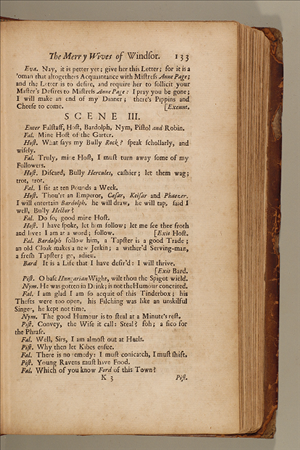 The Merry Wives of Windsor. 133
Eva. Nay, it is petter yet; give her this Letter; for it is a
'oman that altogethers Acquaintance with Mistress Anne Page;
and the Letter is to desire, and require her to sollicit your
Master's Desires to Mistress Anne Page: I pray you be gone;
I will make an end of my Dinner; there's Pippins and
Cheese to come. [Exeunt.
SCENE III.
Enter Falstaff, Host, Bardolph, Nym, Pistol and Robin.
Fal. Mine Host of the Garter.
Host. What says my Bully Rock? speak schollarly, and
wisely.
Fal. Truly, mine Host, I must turn away some of my
Followers.
Host. Discard, Bully Hercules, cashier; let them wag;
trot, trot.
Fal. I sit at ten Pounds a Week.
Host. Thou'rt an Emperor, Cæsar, Keiser and Pheazer.
I will entertain Bardolph, he will draw, he will tap, said I
well, Bully Hector?
Fal. Do so, good mine Host.
Host. I have spoke, let him follow; let me see thee froth
and love: I am at a word; follow. [Exit Host.
Fal. Bardolph follow him, a Tapster is a good Trade;
an old Cloak makes a new Jerkin; a wither'd Serving-man,
a fresh Tapster; go, adieu.
Bard It is a Life that I have desir'd: I will thrive.
[Exit Bard.
Pist. O base Hungarian Wight, wilt thou the Spigot wield.
Nym. He was gotten in Drink; is not the Humour conceited.
Fal. I am glad I am so aquit of this Tinderbox; his
Thefts were too open, his Filching was like an unskilful
Singer, he kept not time.
Nym. The good Humour is to steal at a Minute's rest.
Pist. Convey, the Wise it call: Steal? foh; a fico for
the Phrase.
Fal. Well, Sirs, I am almost out at Heels.
Pist. Why then let Kibes ensue.
Fal. There is no remedy: I must conicatch, I must shift.
Pist. Young Ravens must have Food.
Fal. Which of you know Ford of this Town?
K 3 Pist.